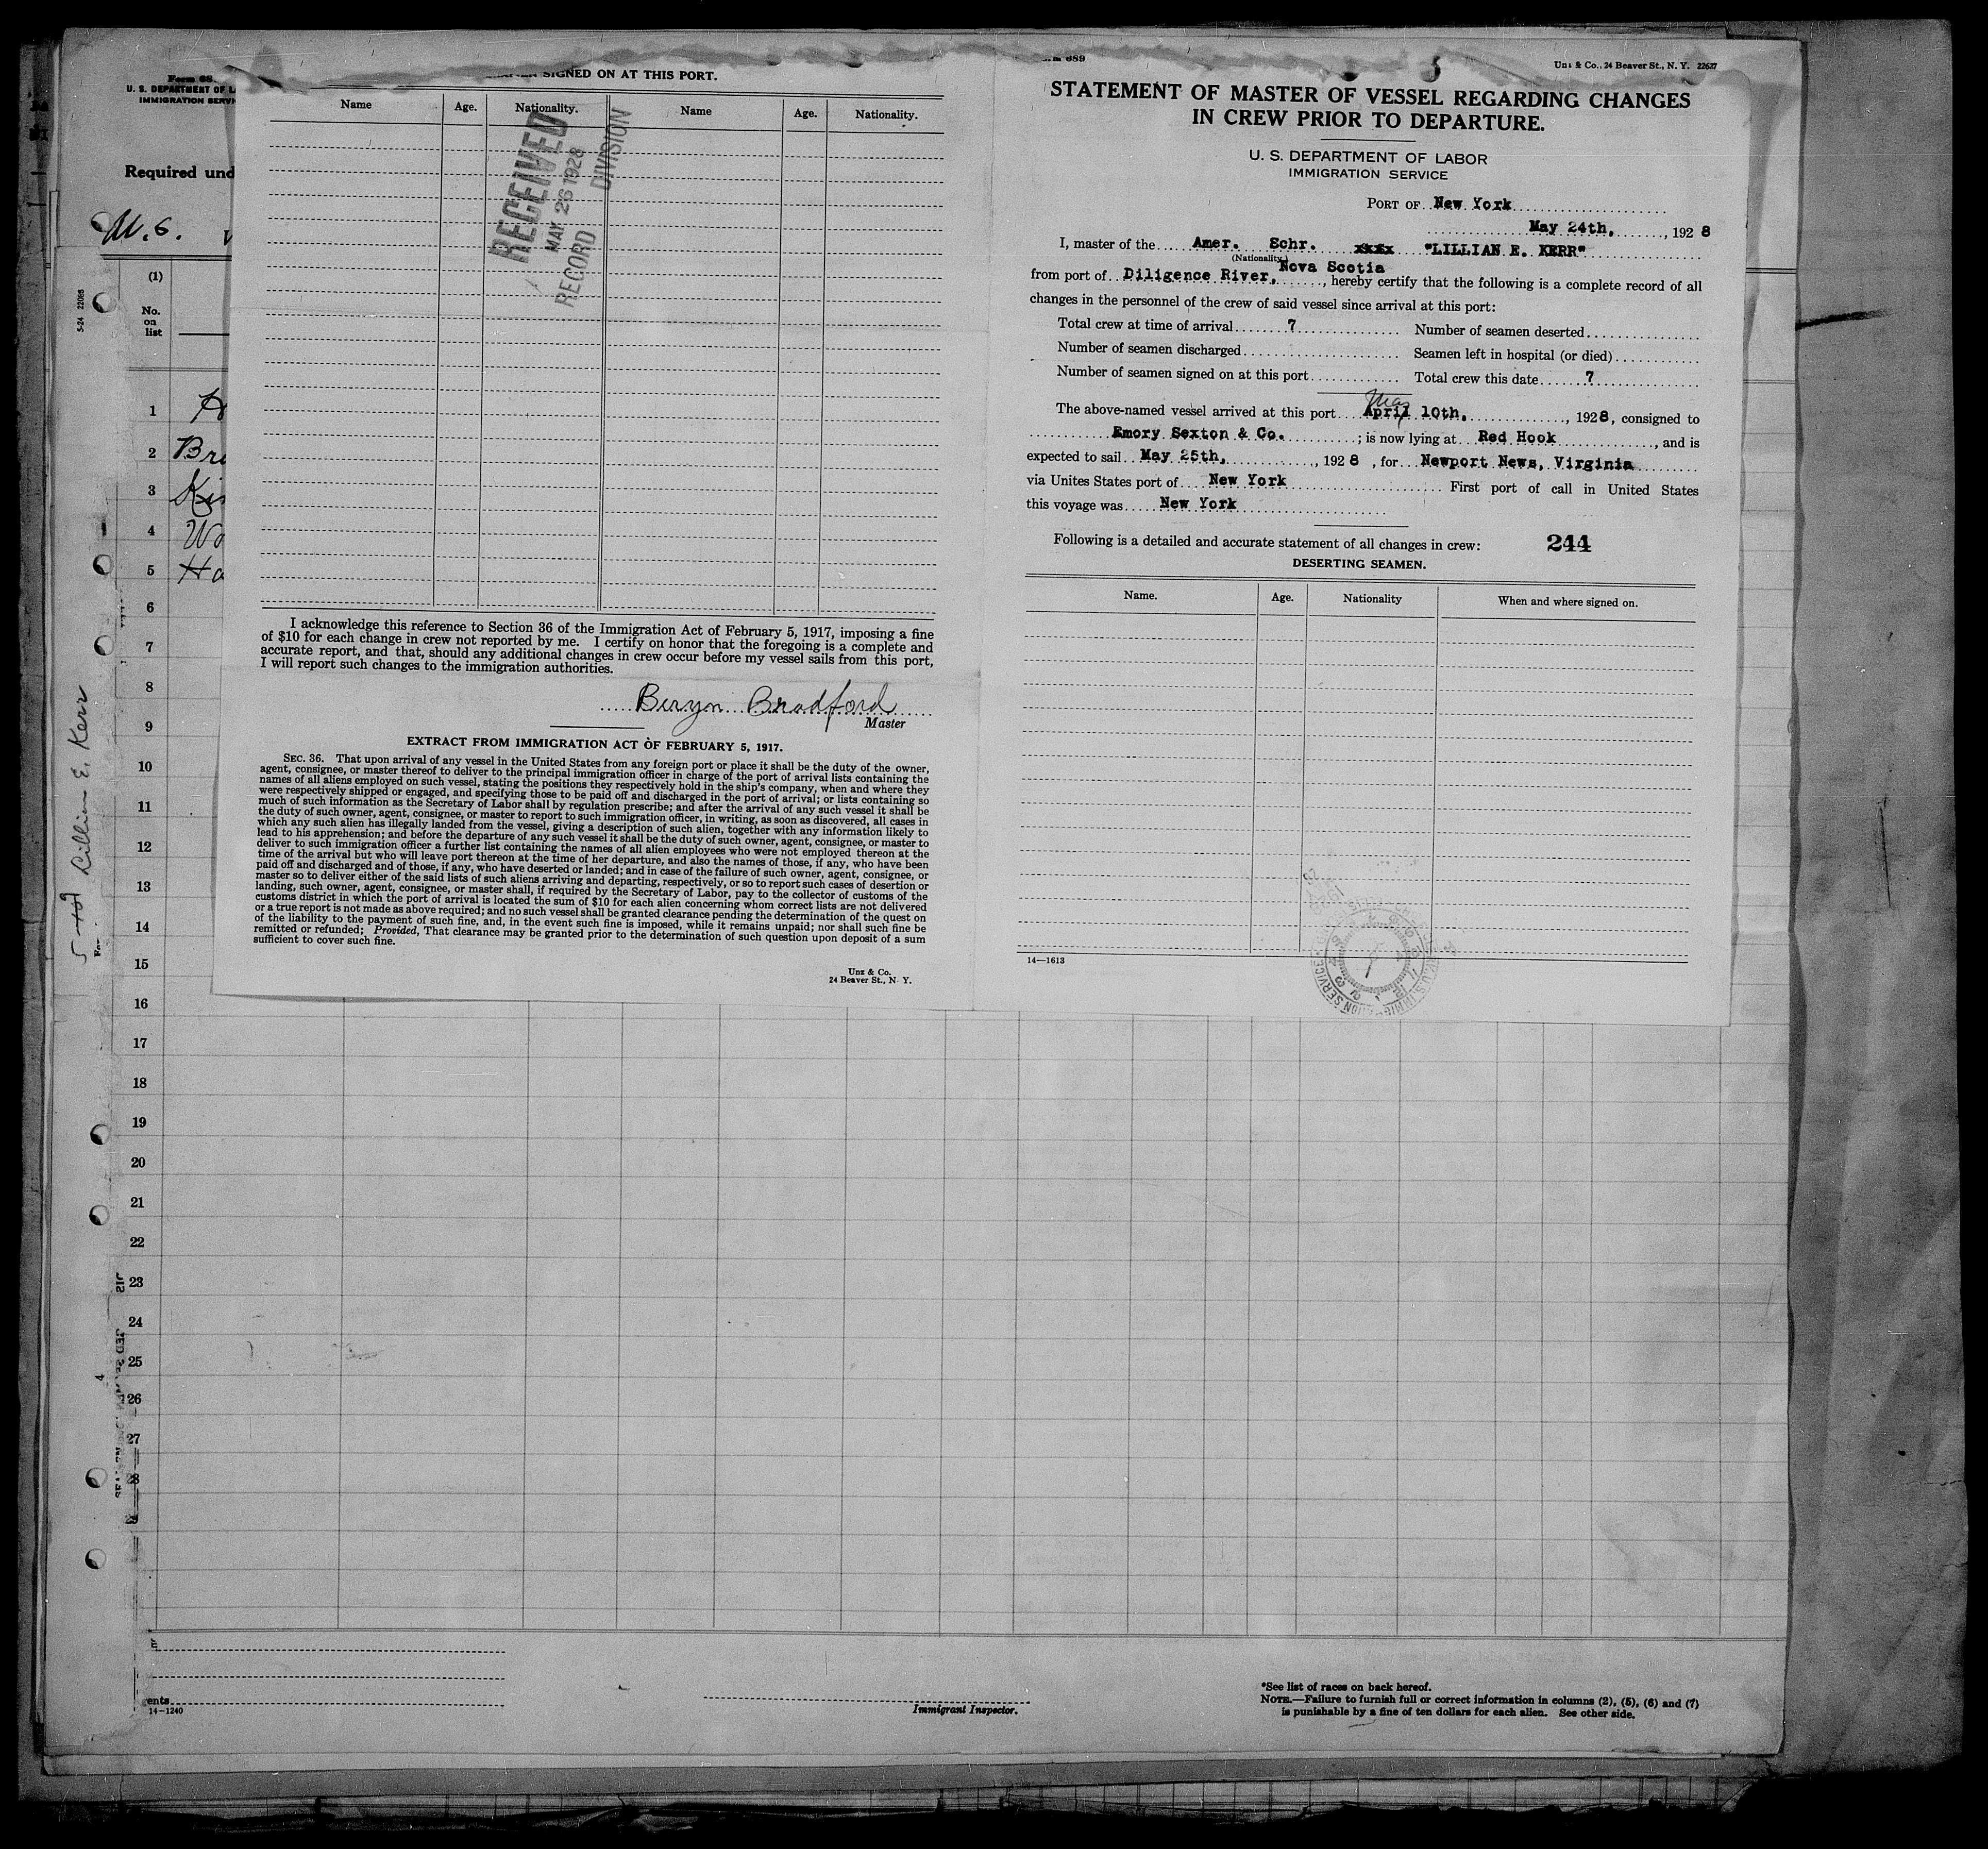 Form 68
U. S. DEPARTMENT OF L
IMMIGRATION SERV
Required und
U.S.
(1)
No.
on
list
5-24 22088
1
2 Bra
3 Kis
4 Wo
5 Ha
6
7
8
9
10
11
12
13
14
15
16
17
18
19
20
21
22
23
24
25
26
27
28
29
Lillian E. Kerr
SIGNED ON AT THIS PORT.
Name Age. Nationality. Name Age. Nationality.
RECEIVED
MAY 26 1928
RECORD DIVISION
I acknowledge this reference to Section 36 of the Immigration Act of February 5, 1917, imposing a fine
of $10 for each change in crew not reported by me. I certify on honor that the foregoing is a complete and
accurate report, and that, should any additional changes in crew occur before my vessel sails from this port,
I will report such changes to the immigration authorities.
Beryn Bradford
Master
EXTRACT FROM IMMIGRATION ACT OF FEBRUARY 5, 1917.
SEC. 36. That upon arrival of any vessel in the United States from any foreign port or place it shall be the duty of the owner,
agent, consignee, or master thereof to deliver to the principal immigration officer in charge of the port of arrival lists containing the
names of all aliens employed on such vessel, stating the positions they respectively hold in the ship's company, when and where they
were respectively shipped or engaged, and specifying those to be paid off and discharged in the port of arrival; or lists containing so
much of such information as the Secretary of Labor shall by regulation prescribe; and after the arrival of any such vessel it shall be
the duty of such owner, agent, consignee, or master to report to such immigration officer, in writing, as soon as discovered, all cases in
which any such alien has illegally landed from the vessel, giving a description of such alien, together with any information likely to
lead to his apprehension; and before the departure of any such vessel it shall be the duty of such owner, agent, consignee, or master to
deliver to such immigration officer a further list containing the names of all alien employees who were not employed thereon at the
time of the arrival but who will leave port thereon at the time of her departure, and also the names of those, if any, who have been
paid off and discharged and of those, if any, who have deserted or landed; and in case of the failure of such owner, agent, consignee, or
master so to deliver either of the said lists of such aliens arriving and departing, respectively, or so to report such cases of desertion or
landing, such owner, agent, consignee, or master shall, if required by the Secretary of Labor, pay to the collector of customs of the
customs district in which the port of arrival is located the sum of $10 for each alien concerning whom correct lists are not delivered
or a true report is not made as above required; and no such vessel shall be granted clearance pending the determination of the quest on
of the liability to the payment of such fine, and, in the event such fine is imposed, while it remains unpaid; nor shall such fine be
remitted or refunded; Provided, That clearance may be granted prior to the determination of such question upon deposit of a sum
sufficient to cover such fine.
Unz & Co.
24 Beaver St., N. Y.
689
Unz & Co., 24 Beaver St., N. Y. 22627
STATEMENT OF MASTER OF VESSEL REGARDING CHANGES
IN CREW PRIOR TO DEPARTURE.
U. S. DEPARTMENT OF LABOR
IMMIGRATION SERVICE
PORT OF New York
May 24th, , 1928
I, master of the Amer. Schr. xxxx "LILLIAN E. KERR"
(Nationality)
Nova Scotia
from port of Diligence River, , hereby certify that the following is a complete record of all
changes in the personnel of the crew of said vessel since arrival at this port:
Total crew at time of arrival 7 Number of seamen deserted
Number of seamen discharged Seamen left in hospital (or died)
Number of seamen signed on at this port Total crew this date 7
May
The above-named vessel arrived at this port April 10th, , 1928, consigned to
Emory Sexton & Co. ; is now lying at Red Hook , and is
expected to sail May 25th, , 1928 , for Newport News, Virginia
via Unites States port of New York First port of call in United States
this voyage was New York
Following is a detailed and accurate statement of all changes in crew: 244
DESERTING SEAMEN.
Name. Age. Nationality When and where signed on.
14—1613
ents
14-1240
Immigrant Inspector.
*See list of races on back hereof.
NOTE.—Failure to furnish full or correct information in columns (2), (5), (6) and (7)
is punishable by a fine of ten dollars for each alien. See other side.